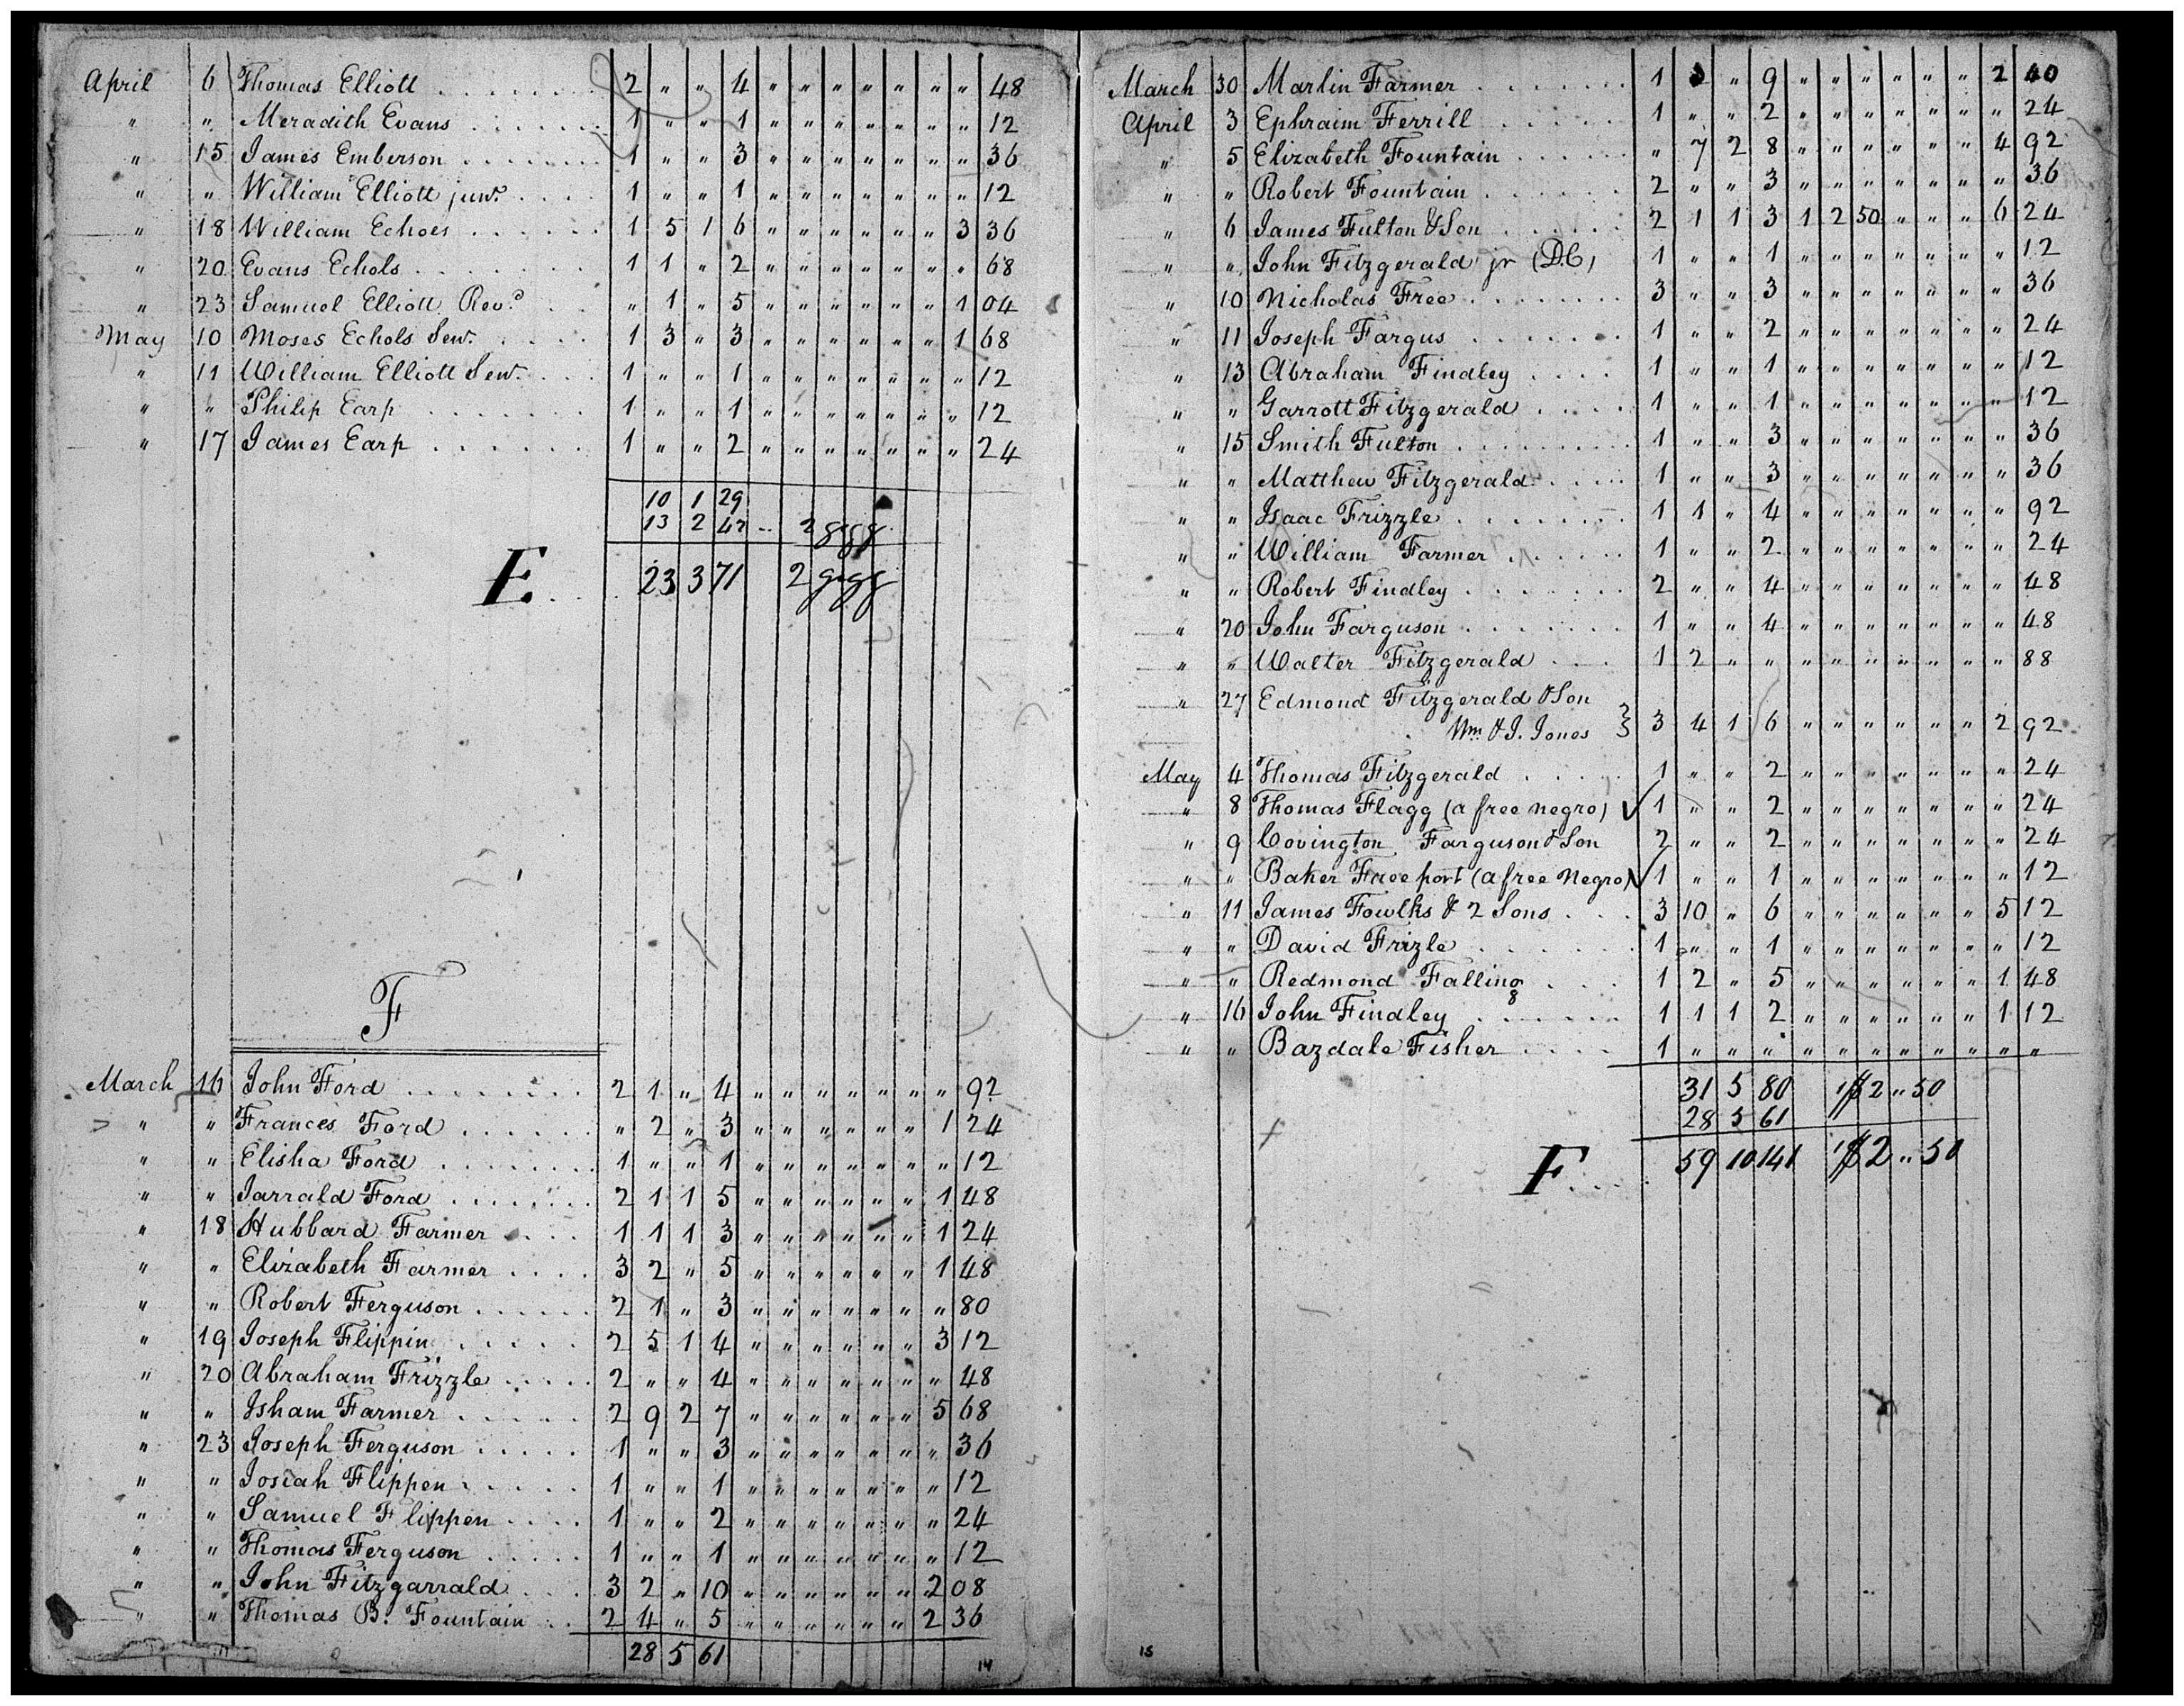 April 6 Thomas Elliott . . . . . . 2 " " 4 " " " " " " " 48
" " Meradith Evans . . . . . . 1 " " 1 " " " " " " " 12
" 15 James Emberson . . . . . . 1 " " 3 " " " " " " " 36
" " William Elliott junr. . . . . 1 " " 1 " " " " " " " 12
" 18 William Echoes . . . . . . 1 5 1 6 " " " " " " 3 36
" 20 Evans Echols . . . . . . 1 1 " 2 " " " " " " " 68
" 23 Samuel Elliott Revd . . " 1 " 5 " " " " " " 1 04
May 10 Moses Echols Senr. . . . . 1 3 " 3 " " " " " " 1 68
" 11 William Elliott Senr. . . . 1 " " 1 " " " " " " " 12
" " Philip Earp . . . . . . 1 " " 1 " " " " " " " 12
" 17 James Earp . . . . . . 1 " " 2 " " " " " " " 24
10 1 29
13 2 42 .. 2
E . . 23 3 71 2
F
March 16 John Ford . . . . . . . 2 1 " 4 " " " " " " " 92
" " Frances Ford . . . . . . " 2 " 3 " " " " " " 1 24
" " Elisha Ford . . . . . . . 1 " " 1 " " " " " " " 12
" " Jarrald Ford . . . . . . 2 1 1 5 " " " " " " 1 48
" 18 Hubbard Farmer . . . . 1 1 1 3 " " " " " " 1 24
" " Elizabeth Farmer . . . . 3 2 " 5 " " " " " " 1 48
" " Robert Ferguson . . . . . . 2 1 " 3 " " " " " " " 80
" 19 Joseph Flippin . . . . . 2 5 1 4 " " " " " " 3 12
" 20 Abraham Frizzle . . . . . 2 " " 4 " " " " " " " 48
" " Isham Farmer . . . . . 2 9 2 7 " " " " " " 5 68
" 23 Joseph Ferguson . . . . . 1 " " 3 " " " " " " " 36
" " Josiah Flippen . . . . . 1 " " 1 " " " " " " " 12
" " Samuel Flippen . . . . 1 " " 2 " " " " " " " 24
" " Thomas Ferguson . . . . . 1 " " 1 " " " " " " " 12
" " John Fitzgarrald . . . 3 2 " 10 " " " " " " 2 08
" " Thomas B. Fountain . . 2 4 " 5 " " " " " " 2 36
28 5 61
14
March 30 Marlin Farmer . . . . . . 1 3 " 9 " " " " " " 2 40
April 3 Ephraim Ferrill . . . . . 1 " " 2 " " " " " " " 24
" 5 Elizabeth Fountain . . . . . . " 7 2 8 " " " " " " 4 92
" " Robert Fountain . . . . . . 2 " " 3 " " " " " " " 36
" 6 James Fulton & Son . . . . . . 2 1 1 3 1 2 50 " " " 6 24
" " John Fitzgerald jr (D.C) 1 " " 1 " " " " " " " 12
" 10 Nicholas Free . . . . . . . 3 " " 3 " " " " " " " 36
" 11 Joseph Fargus . . . . . . . 1 " " 2 " " " " " " " 24
" 13 Abraham Findley . . . . 1 " " 1 " " " " " " " 12
" " Garrott Fitzgerald . . . . 1 " " 1 " " " " " " " 12
" 15 Smith Fulton . . . . . . . . 1 " " 3 " " " " " " " 36
" " Matthew Fitzgerald . . . . 1 " " 3 " " " " " " " 36
" " Isaac Frizzle . . . . . . . 1 1 " 4 " " " " " " " 92
" " William Farmer . . . . . . 1 " " 2 " " " " " " " 24
" " Robert Findley . . . . . . . 2 " " 4 " " " " " " " 48
" 20 John Farguson . . . . . . . 1 " " 4 " " " " " " " 48
" " Walter Fitzgerald . . . 1 2 " " " " " " " " " 88
" 27 Edmond Fitzgerald & Son
Wm & J. Jones } 3 4 1 6 " " " " " " 2 92
May 4 Thomas Fitzgerald . . . . . 1 " " 2 " " " " " " " 24
" 8 Thomas Flagg (a free negro) ✓ 1 " " 2 " " " " " " " 24
" 9 Covington Farguson & Son 2 " " 2 " " " " " " " 24
" " Baker Freeport (a free Negro) ✓ 1 " " 1 " " " " " " " 12
" 11 James Fowlks & 2 Sons . . . 3 10 " 6 " " " " " " 5 12
" " David Frizle . . . . . . . 1 " " 1 " " " " " " " 12
" " Redmond Falling . . . 1 2 " 5 " " " " " " 1 48
" 16 John Findley . . . . . . 1 1 1 2 " " " " " " 1 12
" " Bazdale Fisher . . . . 1 " " " " " " " " " " "
31 5 80 1 $2 " 50
28 5 61
F . . . 59 10 141 1 $2 " 50
15